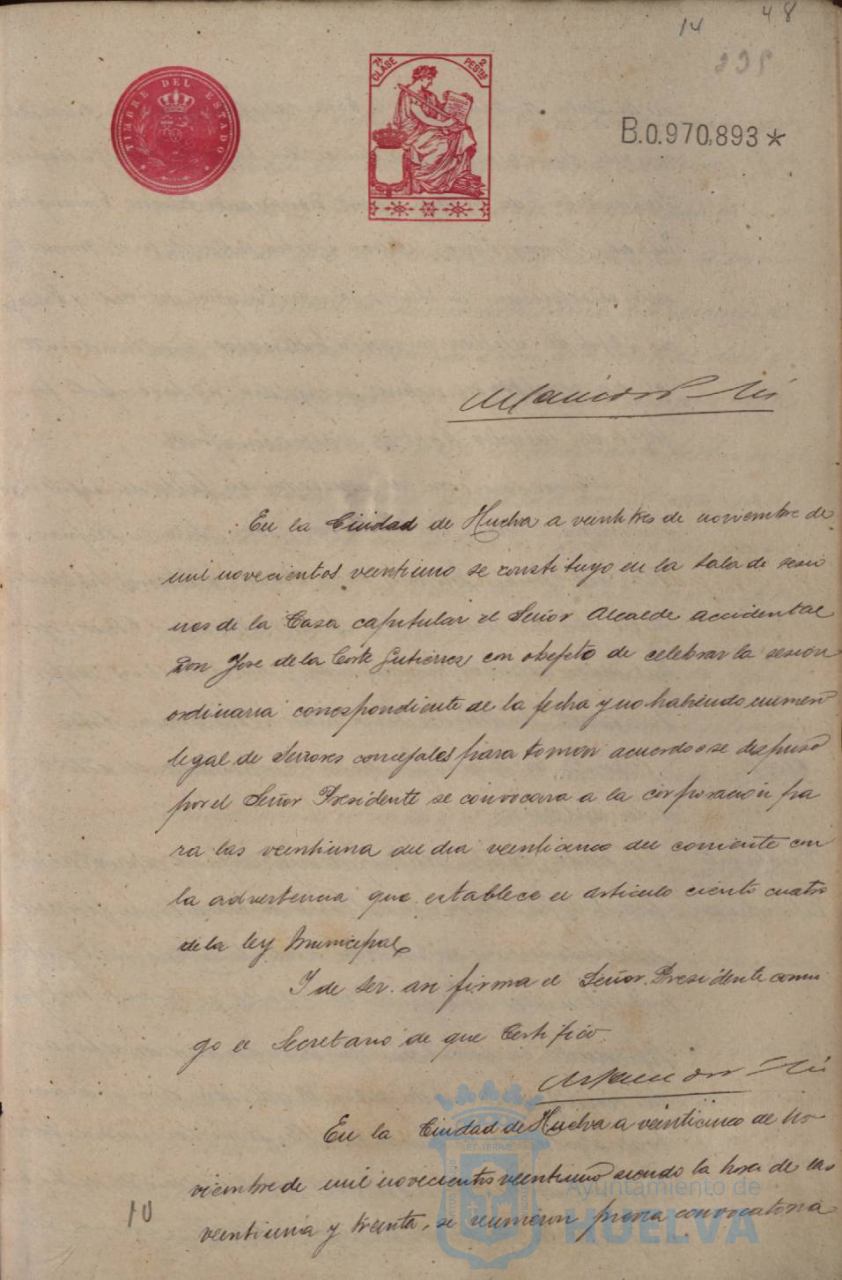 14 48
TIMBRE DEL ESTADO
7ª CLASE 2 PESTAS
B.0.970,893*
En la Ciudad de Huelva a veintitres de noviembre de
mil novecientos veintiuno se constituyo en la Sala de sesio
nes de la Casa capitular el Señor Alcalde accidental
Don Jose de la Corte Gutierrez con objeto de celebrar la sesión
ordinaria correspondiente de la fecha y no habiendo numero
legal de Señores concejales para tomar acuerdos se dispuso
por el Señor Presidente se convocara a la corporación pa
ra las veintiuna del dia veinticinco del corriente con
la advertencia que establece el articulo ciento cuatro
de la ley Municipal
Y de ser asi firma el Señor Presidente conmi
go el Secretario de que Certifico.
En la Ciudad de Huelva a veinticinco de no-
viembre de mil novecientos veintiuno siendo la hora de las
veintiuna y treinta, se reunieron previa convocatoria
10
Ayuntamiento de
HUELVA